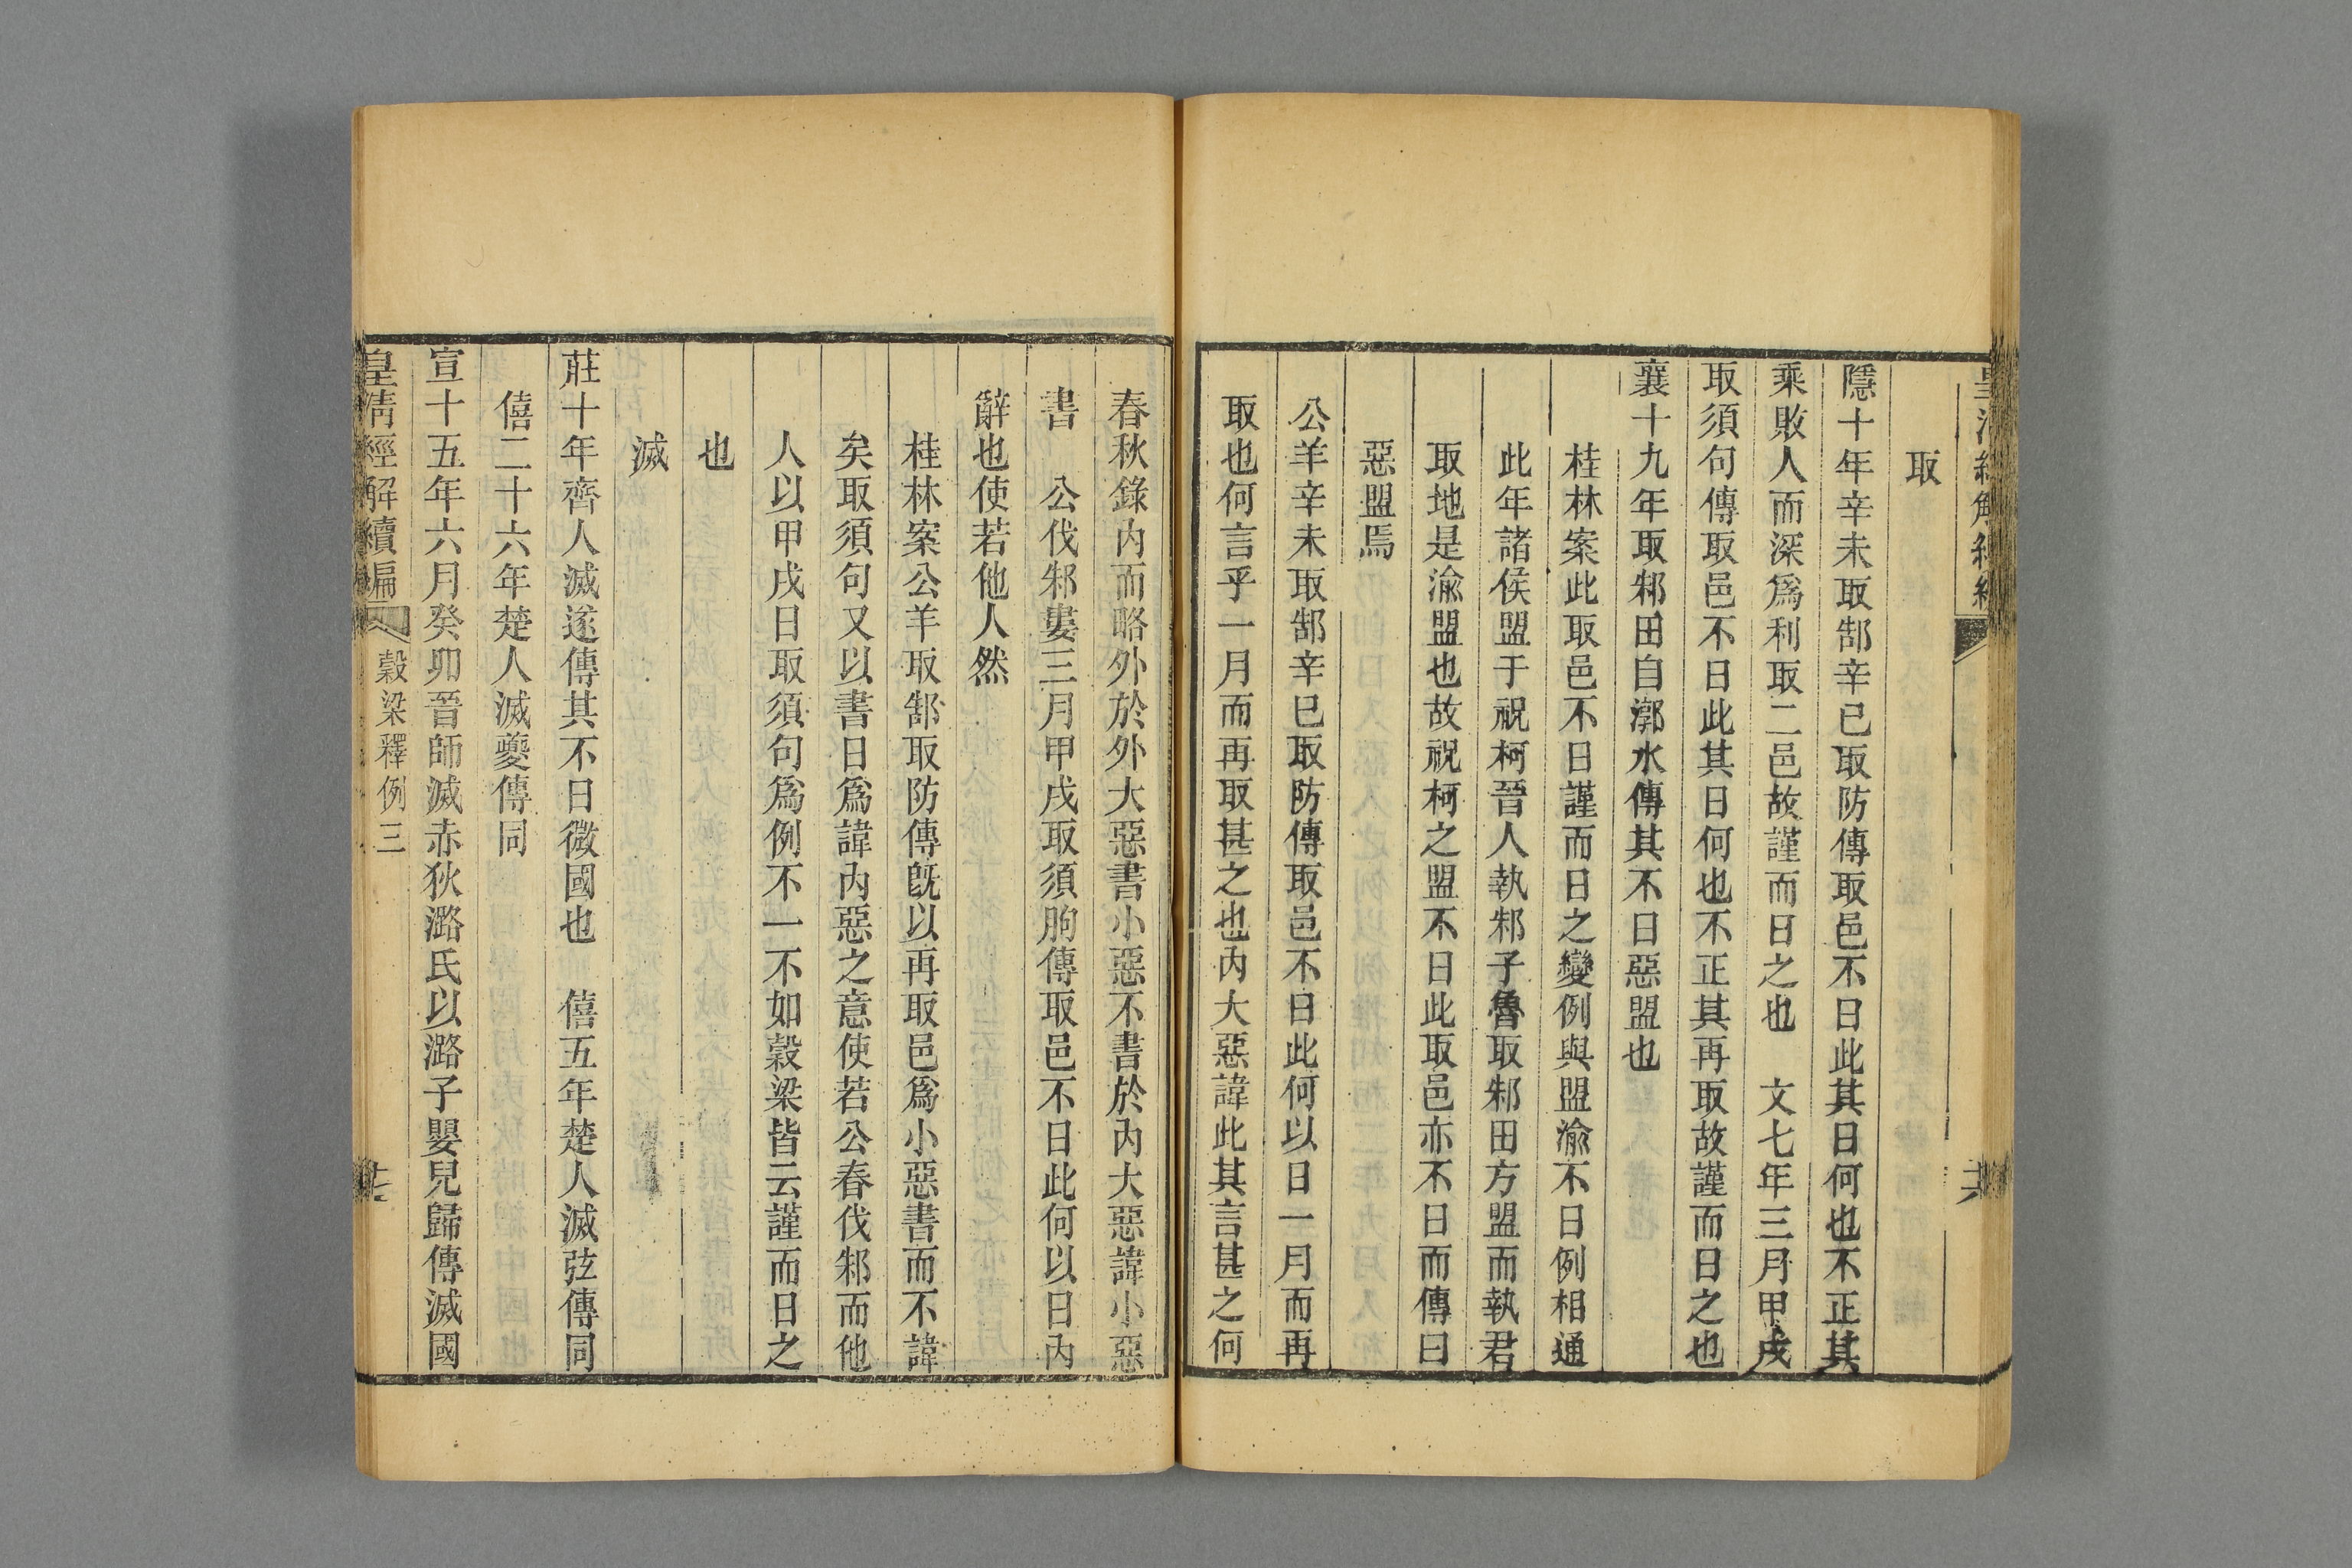 取
隱十年辛未取郜辛已取防傳取邑不日此其日何也不正其
乘敗人而深爲利取二邑故謹而日之也　文七年三月甲戌
取須句傳取邑不日此其日何也不正其再取故謹而日之也
襄十九年取邾田自漷水傳其不日惡盟也
桂林案此取邑不日謹而日之變例與盟渝不日例相通
此年諸侯盟于祝柯晉人執邾子魯取邾田方盟而執君
取地是渝盟也故祝柯之盟不日此取邑亦不日而傳曰
惡盟焉
公羊辛未取郜辛巳取防傳取邑不日此何以日一月而再
取也何言乎一月而再取甚之也內大惡諱此其言甚之何
春秋錄內而略外於外大惡書小惡不書於內大惡諱小惡
書　公伐邾婁三月甲戌取須朐傳取邑不日此何以日內
辭也使若他人然
桂林案公羊取郜取防傳旣以再取邑爲小惡書而不諱
矣取須句又以書日爲諱內惡之意使若公春伐邾而他
人以甲戌日取須句爲例不一不如穀梁皆云謹而日之
也
滅
莊十年齊人滅遂傳其不日微國也　僖五年楚人滅弦傳同
僖二十六年楚人滅夔傳同
宣十五年六月癸卯晉師滅赤狄潞氏以潞子嬰兒歸傳滅國
皇清經解續編　穀梁釋例三